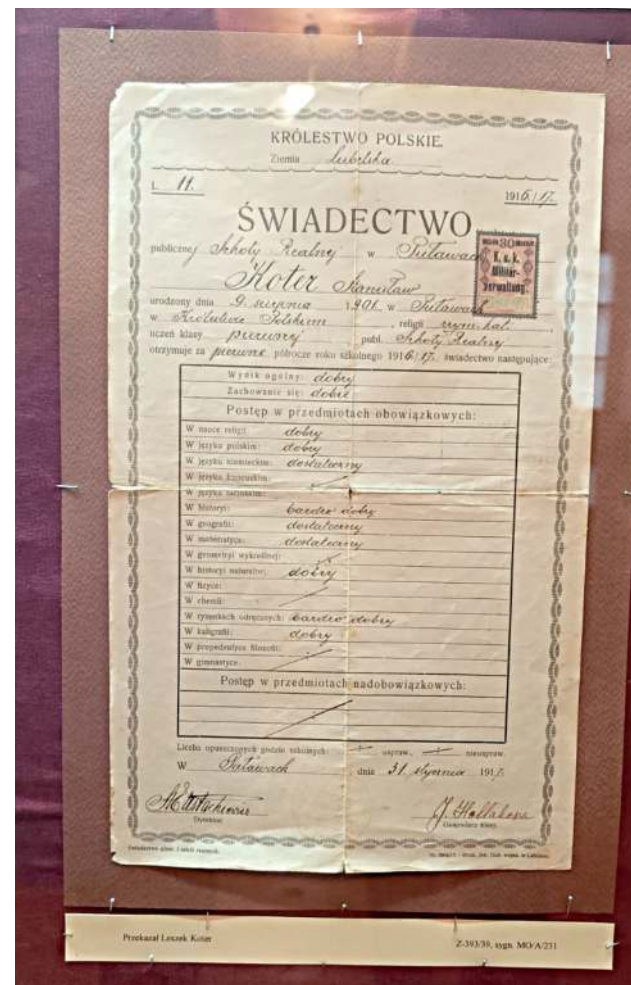 KRÓLESTWO POLSKIE.
Ziemia lubelska
L. 11. 1916/17.
ŚWIADECTWO
publicznej Szkoły Realnej w Puławach
Koter Stanisław
urodzony dnia 9. sierpnia 1901. w Puławach
w Królestwie Polskiem, religii rzym. kat.,
uczeń klasy pierwszej publ. Szkoły Realnej
otrzymuje za pierwsze półrocze roku szkolnego 1916/17. świadectwo następujące:
30
K. u. k.
Militär-
verwaltung.
Wynik ogólny: dobry
Zachowanie się: dobre
Postęp w przedmiotach obowiązkowych:
W nauce religii: dobry
W języku polskim: dobry
W języku niemieckim: dostateczny
W języku francuskim:
W języku łacińskim:
W historyi: bardzo dobry
W geografii: dostateczny
W matematyce: dostateczny
W geometryi wykreślnej:
W historyi naturalnej: dobry
W fizyce:
W chemii:
W rysunkach odręcznych: bardzo dobry
W kaligrafii: dobry
W propedeutyce filozofii:
W gimnastyce:
Postęp w przedmiotach nadobowiązkowych:
Liczba opuszczonych godzin szkolnych: uspraw., nieuspraw.
W Puławach dnia 31. stycznia 1917.
Dyrektor Gospodarz klasy.
Przekazał Leszek Koter Z-393/39, sygn. MO/A/251